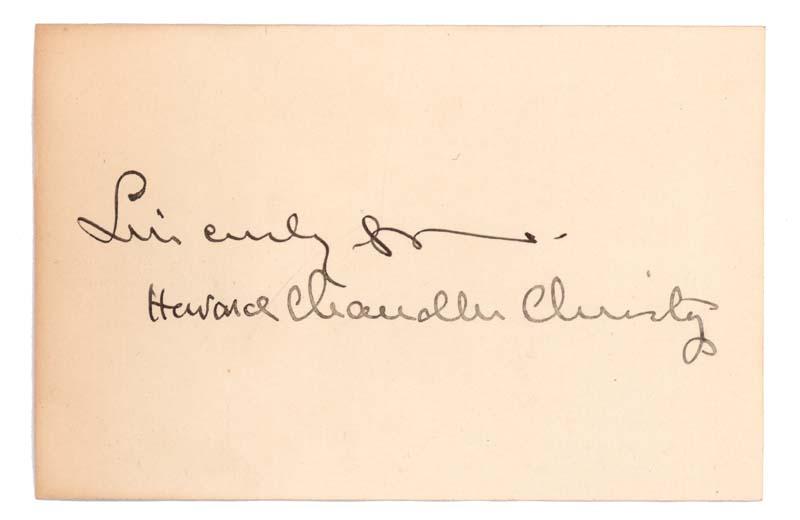 Sincerely yrs -
Howard Chandler Christy